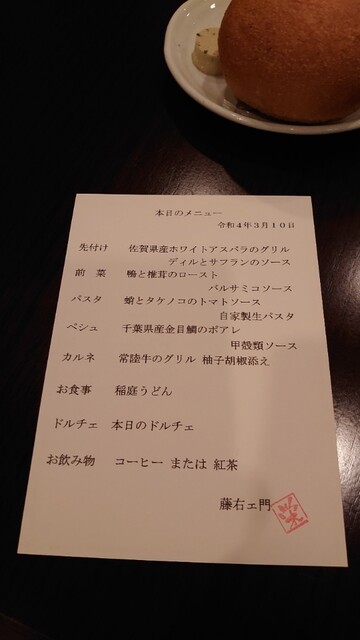 本日のメニュー
令和4年3月10日
先付け 佐賀県産ホワイトアスパラのグリル
ディルとサフランのソース
前 菜 鴨と椎茸のロースト
バルサミコソース
パスタ 蛸とタケノコのトマトソース
自家製生パスタ
ペシェ 千葉県産金目鯛のポアレ
甲殻類ソース
カルネ 常陸牛のグリル 柚子胡椒添え
お食事 稲庭うどん
ドルチェ 本日のドルチェ
お飲み物 コーヒー または 紅茶
藤右ェ門